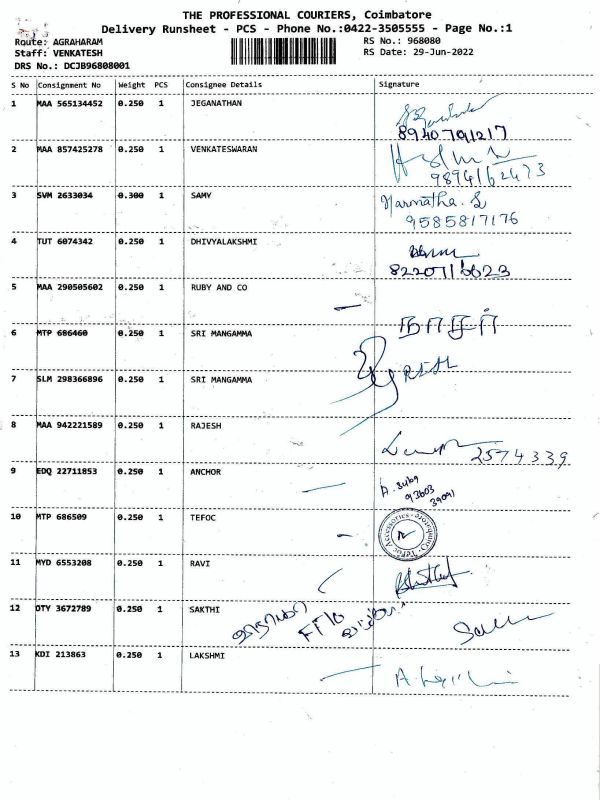 THE PROFESSIONAL COURIERS, Coimbatore
Delivery Runsheet - PCS - Phone No.:0422-3505555 - Page No.:1
Route: AGRAHARAM
RS No.: 968080
Staff: VENKATESH
RS Date: 29-Jun-2022
DRS No.: DCJB96808001
S No Consignment No Weight PCS Consignee Details Signature
1 MAA 565134452 0.250 1 JEGANATHAN
8940791217
2 MAA 857425278 0.250 1 VENKATESWARAN
9894162473
3 SVM 2633034 0.300 1 SAMY Narmatha. S
9585817176
4 TUT 6074342 0.250 1 DHIVYALAKSHMI
8220716623
5 MAA 290505602 0.250 1 RUBY AND CO
நாசர்
6 MTP 686460 0.250 1 SRI MANGAMMA
7 SLM 298366896 0.250 1 SRI MANGAMMA
8 MAA 942221589 0.250 1 RAJESH
2574339
9 EDQ 22711853 0.250 1 ANCHOR
A. Subq
93603
39091
10 MTP 686509 0.250 1 TEFOC
TeFoc Accessories - Coimbatore
11 MYD 6553208 0.250 1 RAVI
12 OTY 3672789 0.250 1 SAKTHI
13 KDI 213863 0.250 1 LAKSHMI